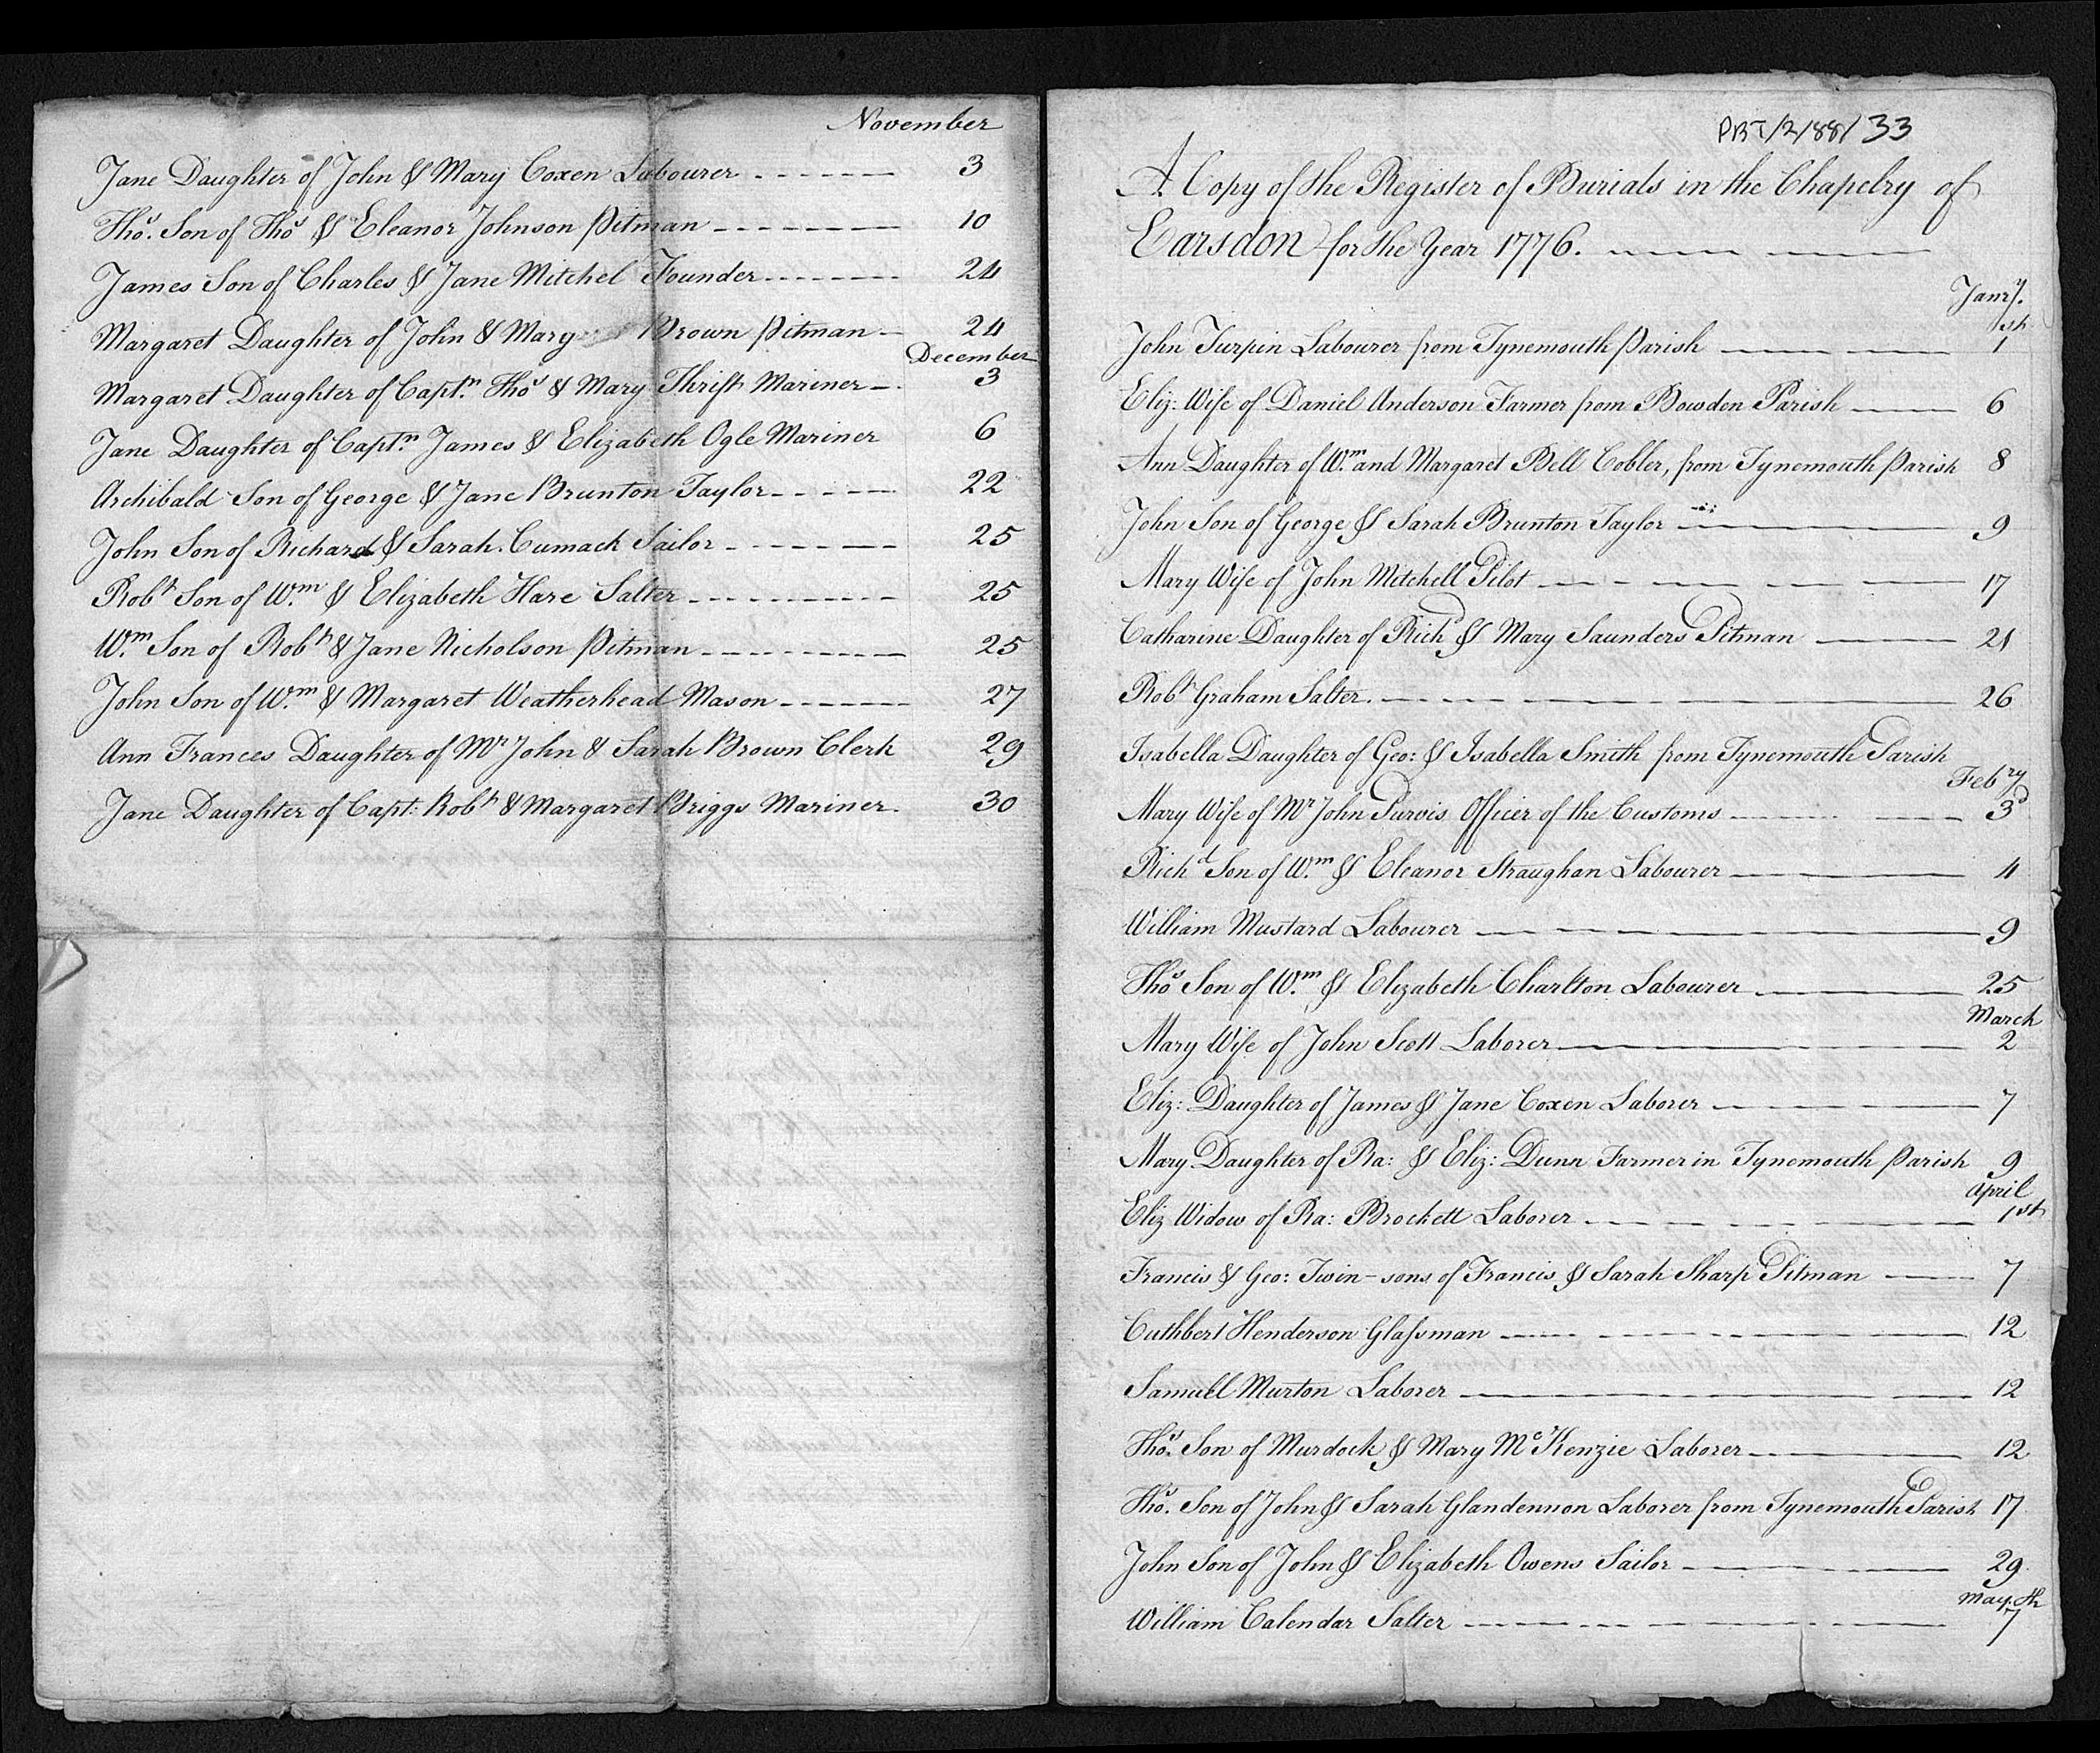 November
Jane Daughter of John & Mary Coxen Labourer 3
Thos. Son of Thos & Eleanor Johnson Pitman 10
James Son of Charles & Jane Mitchel Founder 24
Margaret Daughter of John & Mary Brown Pitman 24
December
Margaret Daughter of Captn. Thos & Mary Thrift Mariner 3
Jane Daughter of Captn. James & Elizabeth Ogle Mariner 6
Archibald Son of George & Jane Brunton Taylor 22
John Son of Richard & Sarah Cumack Sailor 25
Robt Son of Wm. & Elizabeth Hare Salter 25
Wm. Son of Robt & Jane Nicholson Pitman 25
John Son of Wm. & Margaret Weatherhead Mason 27
Ann Frances Daughter of Mr John & Sarah Brown Clerk 29
Jane Daughter of Capt: Robt & Margaret Briggs Mariner 30
PBT/2/88/33
A Copy of the Register of Burials in the Chapelry of
Earsdon for the Year 1776.
Janry.
John Turpin Labourer from Tynemouth Parish 1st
Eliz: Wife of Daniel Anderson Farmer from Bowden Parish 6
Ann Daughter of Wm. and Margaret Bell Cobler, from Tynemouth Parish 8
John Son of George & Sarah Brunton Taylor 9
Mary Wife of John Mitchell Pilot 17
Catharine Daughter of Richd & Mary Saunders Pitman 21
Robt Graham Salter. 26
Isabella Daughter of Geo: & Isabella Smith from Tynemouth Parish
Febry
Mary Wife of Mr John Purvis Officer of the Customs 3d
Richd Son of Wm. & Eleanor Straughan Labourer 4
William Mustard Labourer 9
Thos Son of Wm. & Elizabeth Charlton Labourer 25
March
Mary Wife of John Scott Laborer 2
Eliz: Daughter of James & Jane Coxen Laborer 7
Mary Daughter of Ra: & Eliz: Dunn Farmer in Tynemouth Parish 9
April
Eliz Widow of Ra: Brockett Laborer 1st
Francis & Geo: Twin-sons of Francis & Sarah Sharp Pitman 7
Cuthbert Henderson Glassman 12
Samuell Murton Laborer 12
Thos. Son of Murdock & Mary McKenzie Laborer 12
Thos. Son of John & Sarah Glandennon Laborer from Tynemouth Parish 17
John Son of John & Elizabeth Owens Sailor 29
May
William Calendar Salter 7th